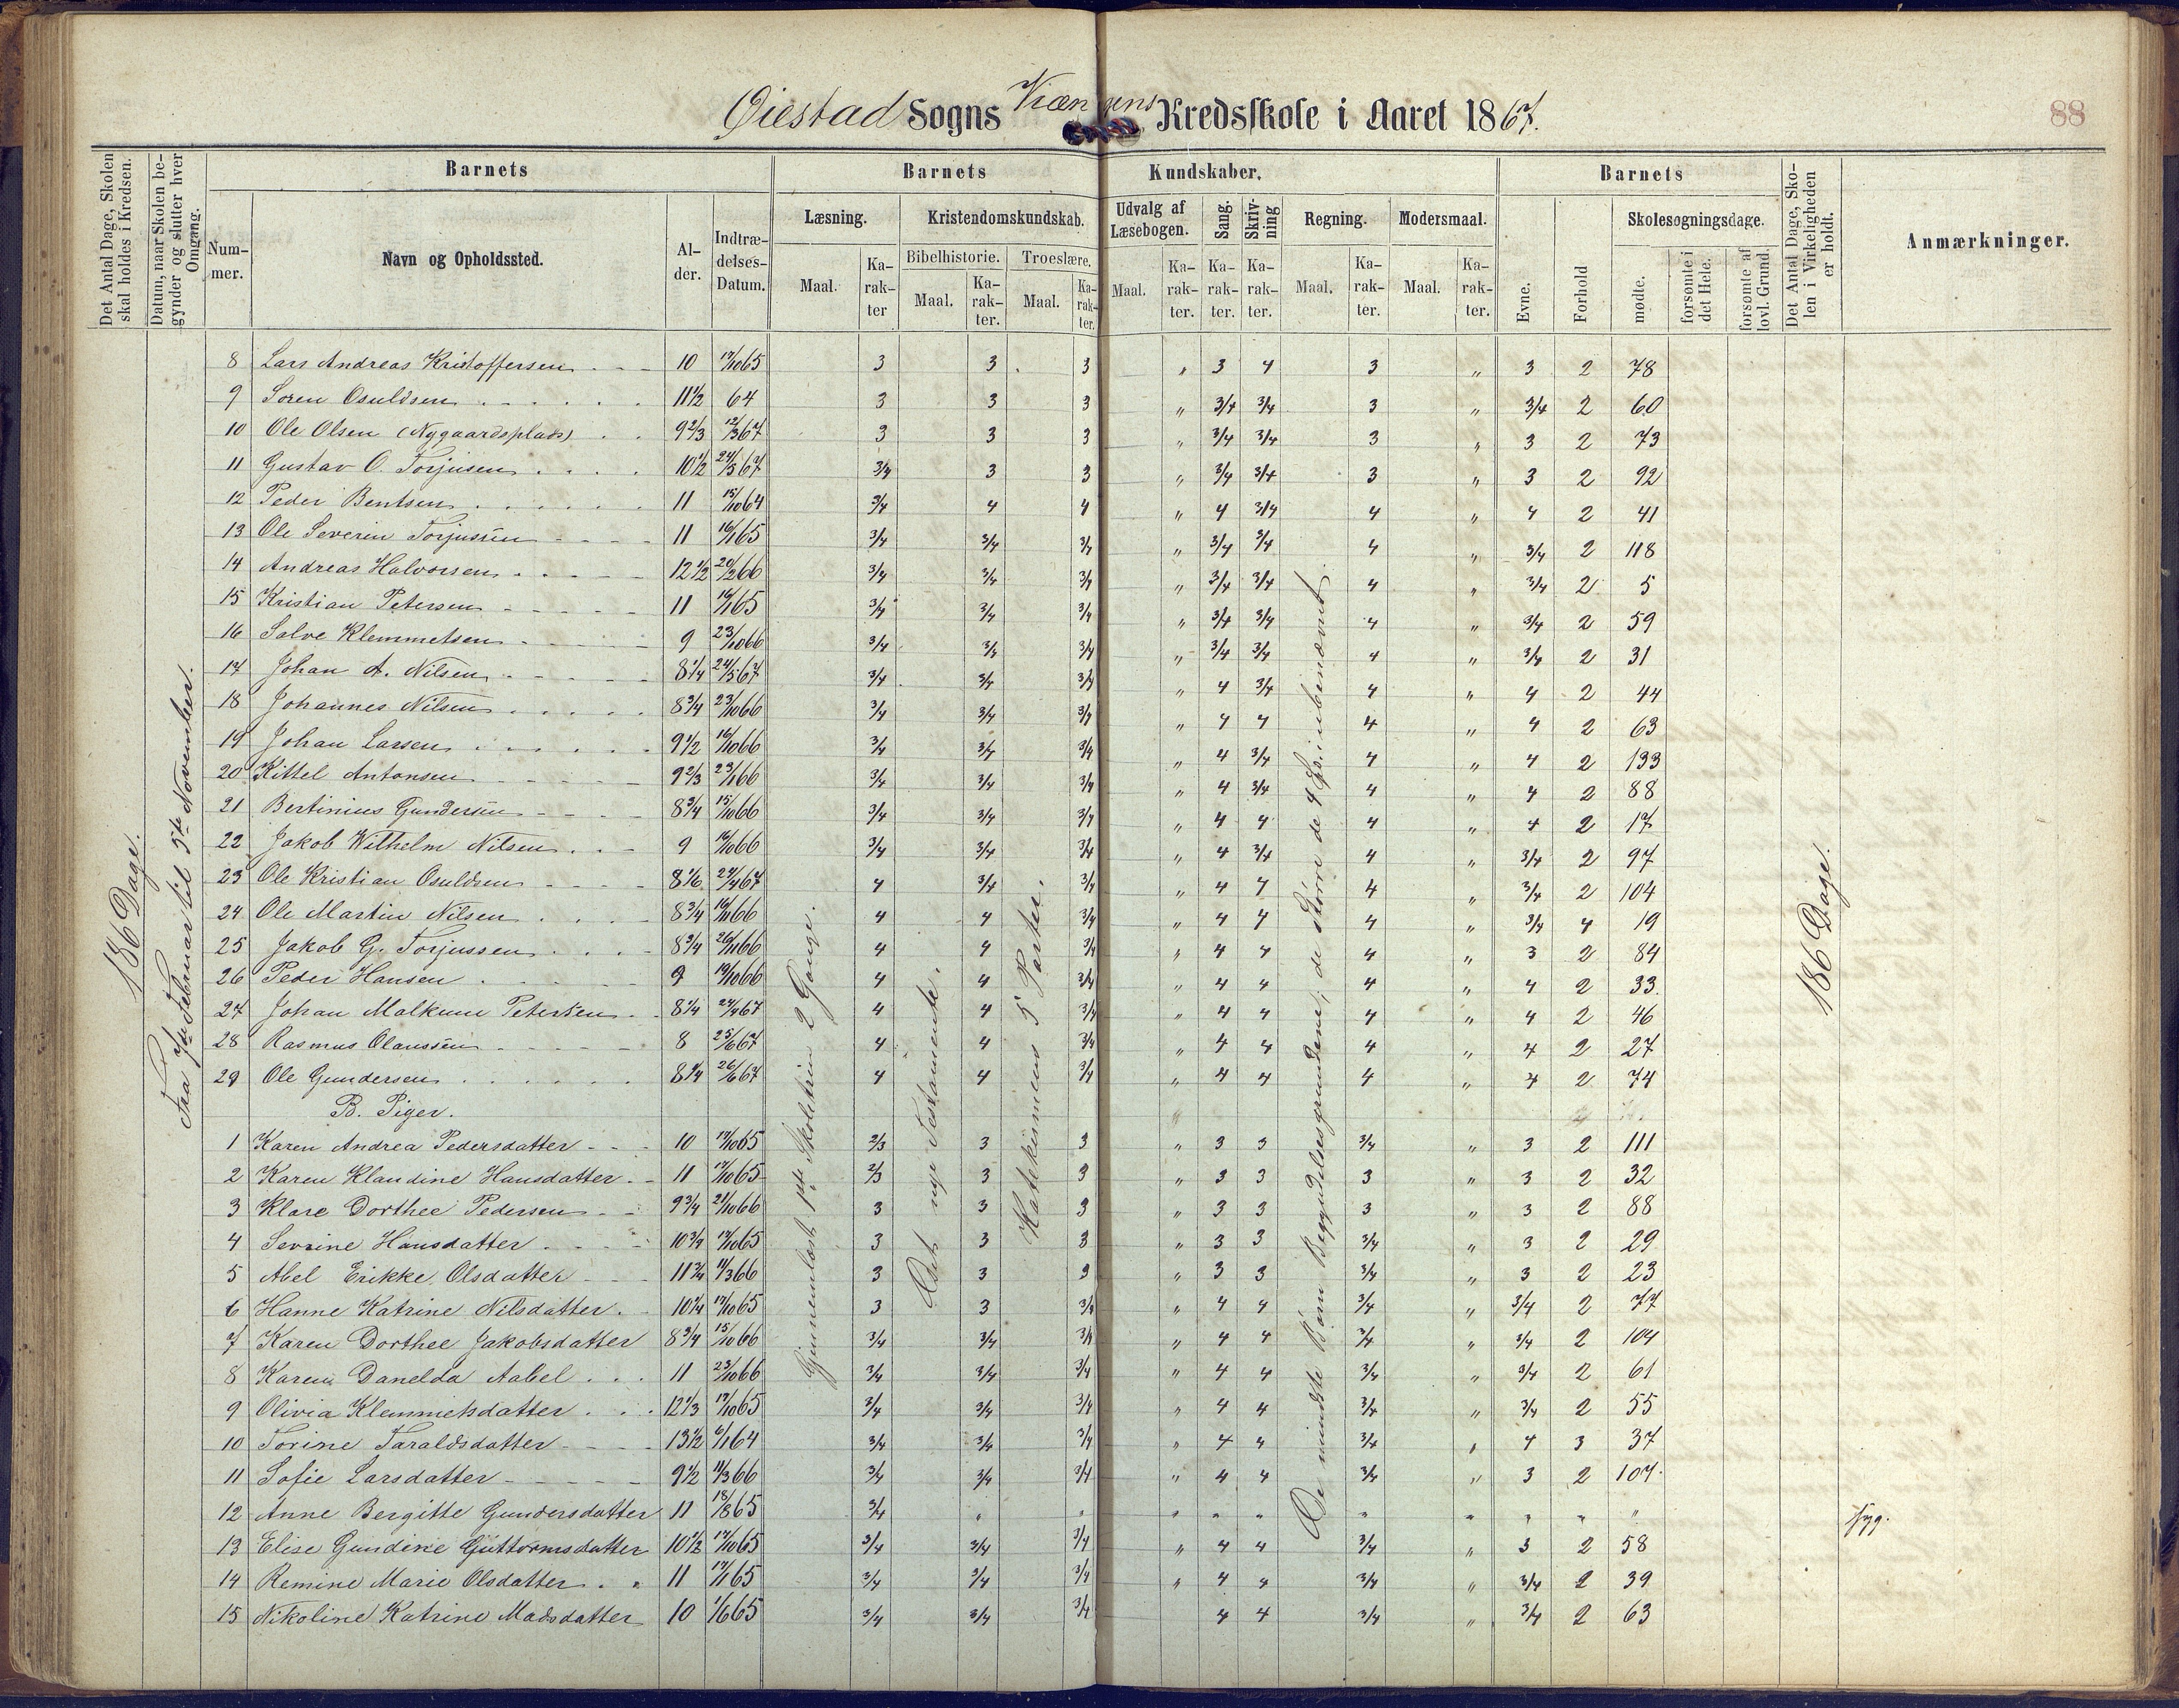 Øiestad Sogns Kredsskole i Aaret 1867.
88
Det Antal Dage, Skolen skal holdes i Kredsen.
Datum, naar Skolen begynder og slutter hver Omgang.
Barnets
Barnets Kundskaber.
Barnets
Nummer.
Navn og Opholdssted.
Alder.
Indtrædelses-Datum.
Læsning.
Kristendomskundskab.
Udvalg af Læsebogen.
Sang.
Skrivning
Regning.
Modersmaal.
Evne.
Forhold
Skolesøgningsdage.
Det Antal Dage, Skolen i Virkeligheden er holdt.
Anmærkninger.
Bibelhistorie.
Troeslære.
Maal. Karakter Maal. Karakter. Maal. Karakter. Maal. Karakter. Karakter. Karakter. Maal. Karakter. Maal. Karakter.
mødte.
forsømte i det Hele.
forsømte af lovl. Grund.
186 Dage.
Fra 7de Februar til 5te November.
Gjennemlæst 1ste Skoletrin 2 Gange.
Det nye Testamente.
Katekismens 5 Parter.
De mindste Børn Begyndelsesgrundene, de større de 4 Sp. i ubenævnt.
186 Dage.
8 Lars Andreas Kristoffersen 10 17/10 65 3 3 3 " 3 4 3 " 3 2 78
9 Soren Osuldsen 11 1/2 64 3 3 3 " 3/4 3/4 3 " 3/4 2 60
10 Ole Olsen (Nygaardsplads) 9 2/3 12/3 67 3 3 3 " 3/4 3/4 3 " 3 2 73
11 Gustav O. Torjusen 10 1/2 24/5 67 3/4 3 3 " 3/4 3/4 3 " 3 2 92
12 Peder Bentsen 11 15/10 64 3/4 4 4 " 4 3/4 4 " 4 2 41
13 Ole Severin Torjussen 11 16/1 65 3/4 3/4 3/4 " 3/4 3/4 4 " 3/4 2 118
14 Andreas Halvorsen 12 1/2 20/2 66 3/4 3/4 3/4 " 3/4 3/4 4 " 3/4 2 5
15 Kristian Petersen 11 16/1 65 3/4 3/4 3/4 " 3/4 3/4 4 " 3/4 2 59
16 Salve Klemmetsen 9 23/10 66 3/4 3/4 3/4 " 3/4 3/4 4 " 3/4 2 31
17 Johan A. Nilsen 8 1/4 24/5 67 3/4 3/4 3/4 " 4 3/4 4 " 4 2 44
18 Johannes Nilsen 8 3/4 23/10 66 3/4 3/4 3/4 " 4 4 4 " 4 2 63
19 Johan Larsen 9 1/2 16/10 66 3/4 3/4 3/4 " 4 3/4 4 " 4 2 133
20 Kittel Antonsen 9 2/3 23/1 66 3/4 3/4 3/4 " 4 3/4 4 " 4 2 88
21 Bertinius Gundersen 8 3/4 15/10 66 3/4 3/4 3/4 " 4 4 4 " 4 2 17
22 Jakob Wilhelm Nilsen 9 16/10 66 3/4 3/4 3/4 " 4 3/4 4 " 3/4 2 97
23 Ole Kristian Osuldsen 8 1/6 29/4 67 4 3/4 3/4 " 4 4 4 " 3/4 2 104
24 Ole Martin Nilsen 8 3/4 66 4 4 3/4 " 4 4 4 " 3/4 4 19
25 Jakob G. Torjussen 8 3/4 66 4 4 3/4 " 4 4 4 " 3 2 84
26 Peder Hansen 9 19/10 66 4 4 3/4 " 4 4 4 " 4 2 33
27 Johan Malkum Petersen 8 1/4 29/4 67 4 4 3/4 " 4 4 4 " 4 2 46
28 Rasmus Olaussen 8 25/6 67 4 4 3/4 " 4 4 4 " 4 2 27
29 Ole Gundersen 8 1/4 26/6 67 4 4 3/4 " 4 4 4 " 4 2 74
B. Piger.
1 Karen Andrea Pedersdatter 10 17/10 65 2/3 3 3 " 3 3 3/4 " 3 2 111
2 Karen Klaudine Hansdatter 11 17/10 65 2/3 3 3 " 3 3 3 " 3 2 32
3 Klare Dorthee Pedersen 9 3/4 21/10 66 3 3 3 " 3 3 3 " 3 2 88
4 Sevrine Hansdatter 10 3/4 17/10 65 3 3 3 " 3 3 3/4 " 3 2 29
5 Abel Erikke Olsdatter 11 3/4 11/3 66 3 3 3 " 3 3 3/4 " 3 2 23
6 Hanne Katrine Nilsdatter 10 1/4 17/10 65 3 3 3/4 " 4 4 3/4 " 3/4 2 77
7 Karen Dorthee Jakobsdatter 8 3/4 15/10 66 3/4 3/4 3/4 " 4 4 3/4 " 3/4 2 104
8 Karen Danelda Aabel 11 23/10 66 3/4 3/4 3/4 " 4 4 3/4 " 3/4 2 61
9 Olivia Klemmetsdatter 12 1/3 17/10 65 3/4 3/4 3/4 " 4 4 3/4 " 3/4 2 55
10 Torine Taraldsdatter 13 1/2 6/1 64 3/4 3/4 3/4 " 4 4 3/4 " 4 3 37
11 Sofie Larsdatter 9 1/2 11/3 66 3/4 3/4 3/4 " 4 4 3/4 " 3 2 107
12 Anne Bergitte Gundersdatter 11 18/8 65 3/4 " " " " " " " " " " syg.
13 Elise Gundine Guttormsdatter 10 1/2 17/10 65 3/4 3/4 3/4 " 4 4 3/4 " 3 2 58
14 Remine Marie Olsdatter 11 17/1 65 3/4 3/4 3/4 " 4 4 3/4 " 3/4 2 39
15 Nikoline Katrine Madsdatter 10 1/6 65 3/4 3/4 3/4 4 4 3/4 " 3/4 2 63